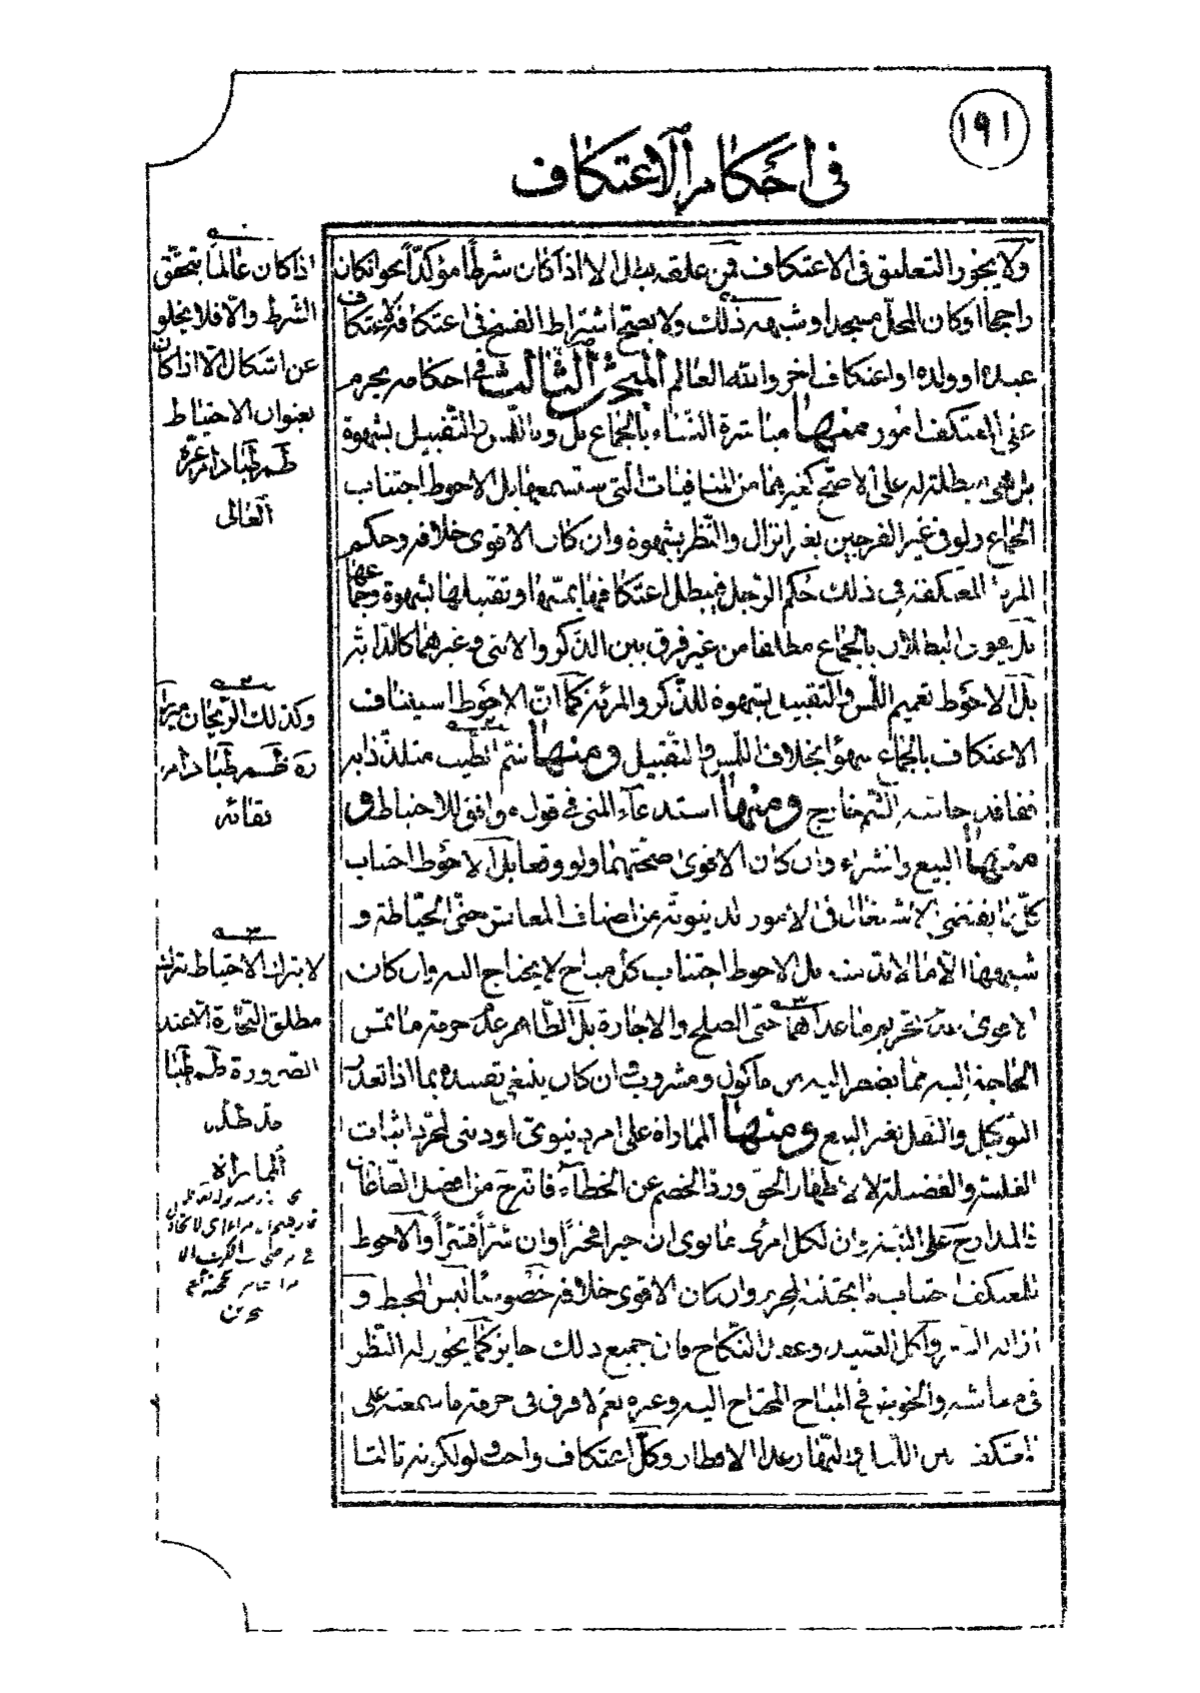 ١٩١
في احكام الاعتكاف
ولا يجوز التعليق في الاعتكاف فمن علقه بطل الا اذا كان شرطًا مؤكدًا نحو ان كان
راجحا او كان المحل مسجدا وشبهه ذلك ولا يصح اشتراط الفسخ في اعتكافه لاعتكاف
عبده او ولده او اعتكاف اخر والله العالم المبحث الثالث في احكامه يحرم
على المعتكف امور منها مباشرة النساء بالجماع بل وباللمس والتقبيل بشهوة
بل هي مبطلة له على الاصح كغيرها من المنافيات التي ستسمعها بل الاحوط اجتناب
الجماع ولو في غير الفرجين بغير انزال والنظر بشهوة وان كان الاقوى خلافه وحكم
المرأة المعتكفة في ذلك حكم الرجل فيبطل اعتكافها بمسها وتقبيلها بشهوة وجماعها
بل يقوى البطلان بالجماع مطلقا من غير فرق بين الذكر والانثى وغيرهما كالدابة
بل الاحوط تعميم اللمس والتقبيل بشهوة للذكر والمرئة كما ان الاحوط استيناف
الاعتكاف بالجماع سهوًا بخلاف اللمس والتقبيل ومنها شم الطيب متلذذا به
ففاقد حاسة الشم خارج ومنها استدعاء المني في قول موافق للاحتياط و
منها البيع والشراء وان كان الاقوى صحتهما ولو وقعا بل الاحوط اجتناب
كل ما يقتضي الاشتغال في الامور الدنيوية من اصناف المعاش حتى الخياطة و
شبهها الا ما لا بد منه بل الاحوط اجتناب كل مباح لا يحتاج اليه وان كان
الاقوى عدم تحريم ما عداهما حتى الصلح والاجارة بل الظاهر عدم حرمة ما تمس
الحاجة اليه مما يضطر اليه من مأكول ومشروب وان كان ينبغي تقييده بما اذا تعذر
التوكيل والنقل بغير البيع ومنها المماراة على امر دنيوي او ديني لمجرد اثبات
الغلبة والفضيلة لا لاظهار الحق ورد الخصم عن الخطاء فانه ح من افضل الطاعات
فالمدار ح على النية وان لكل امرئ ما نوى ان خيرا فخيرًا وان شرًا فشرًا والاحوط
للمعتكف اجتناب ما يجتنبه المحرم وان كان الاقوى خلافه خصوصا لبس المخيط و
ازالة الشعر واكل الصيد وعقد النكاح فان جميع ذلك جايز كما يجوز له النظر
في معاشه والخوض في المباح المحتاج اليه وغيره نعم لا فرق في حرمة ما سمعته على
المعتكف بين الليل والنهار عدا الافطار وكل اعتكاف واجب ولو لكونه ثالثا
اذا كان عالما بتحقق
الشرط والا فلا يخلو
عن اشكال الا اذا كان
بعنوان الاحتياط
طم طبا دام عزه
العالى
٢
وكذلك الريحان ميرزا
ره ظم طبا دام
بقائه
٣
لا يترك الاحتياط بترك
مطلق التجارة الا عند
الضرورة طم طبا
مد ظله
المماراة